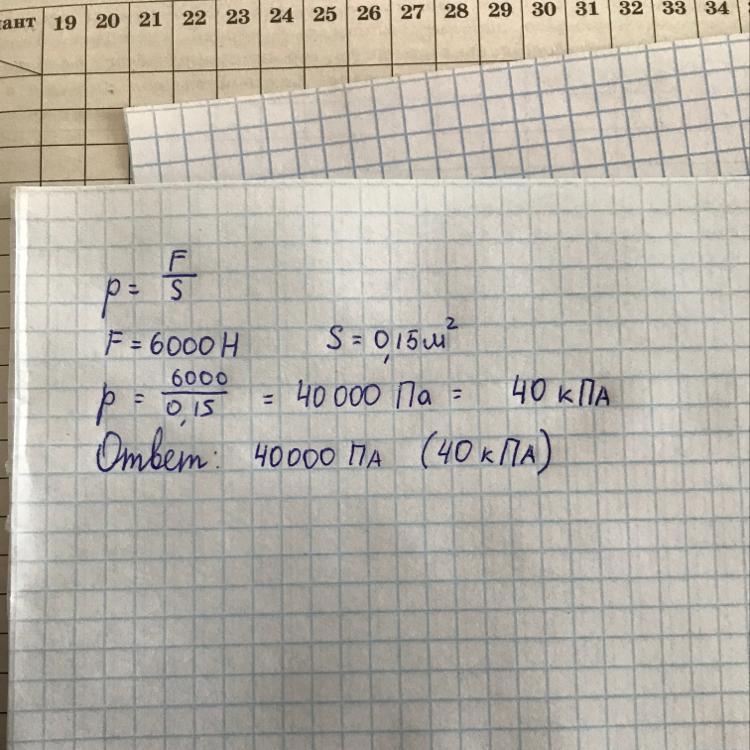 ант 19 20 21 22 23 24 25 26 27 28 29 30 31 32 33 34
p = F/S
F = 6000 Н S = 0,15 м²
p = 6000/0,15 = 40 000 Па = 40 кПА
Ответ: 40000 ПА (40 кПА)